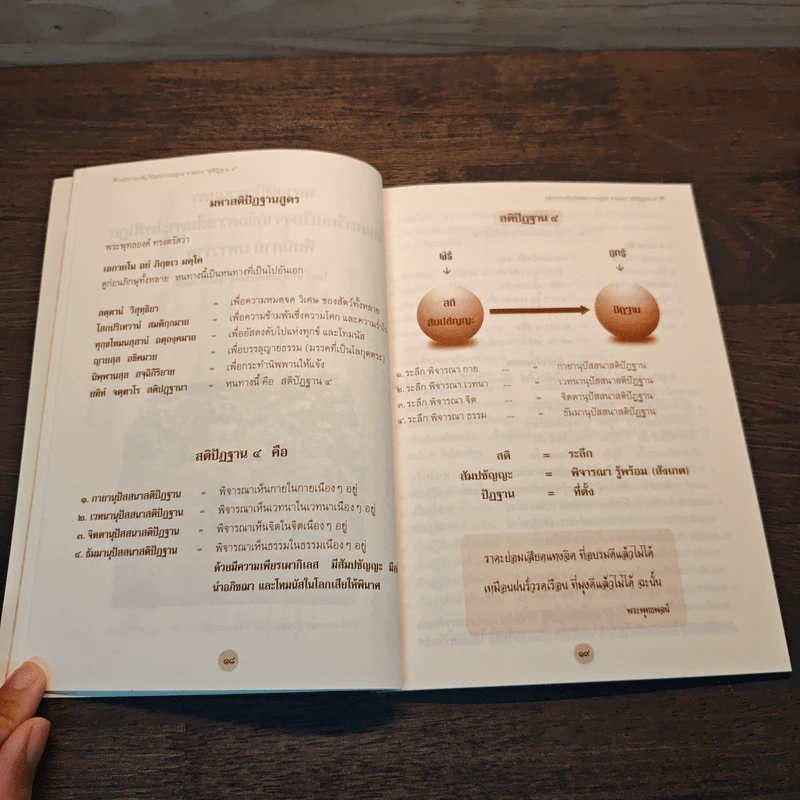 มหาสติปัฏฐานสูตร
พระพุทธองค์ ทรงตรัสว่า
เอกายโน อยํ ภิกฺขเว มคฺโค
ดูก่อนภิกษุทั้งหลาย หนทางนี้เป็นหนทางที่เป็นไปอันเอก
สตฺตานํ วิสุทฺธิยา = เพื่อความหมดจด วิเศษ ของสัตว์ทั้งหลาย
โสกปริเทวานํ สมติกฺกมาย = เพื่อความข้ามพ้นซึ่งความโศก และความร่ำไร
ทุกฺขโทมนสฺสานํ อตฺถงฺคมาย = เพื่ออัสดงดับไปแห่งทุกข์ และโทมนัส
ญายสฺส อธิคมาย = เพื่อบรรลุญายธรรม (มรรคที่เป็นโลกุตตระ)
นิพฺพานสฺส สจฺฉิกิริยาย = เพื่อกระทำนิพพานให้แจ้ง
ยทิทํ จตฺตาโร สติปฏฺฐานา = หนทางนี้ คือ สติปัฏฐาน ๔
สติปัฏฐาน ๔ คือ
๑. กายานุปัสสนาสติปัฏฐาน = พิจารณาเห็นกายในกายเนือง ๆ อยู่
๒. เวทนานุปัสสนาสติปัฏฐาน = พิจารณาเห็นเวทนาในเวทนาเนือง ๆ อยู่
๓. จิตตานุปัสสนาสติปัฏฐาน = พิจารณาเห็นจิตในจิตเนือง ๆ อยู่
๔. ธัมมานุปัสสนาสติปัฏฐาน = พิจารณาเห็นธรรมในธรรมเนือง ๆ อยู่
ด้วยมีความเพียรเผากิเลส มีสัมปชัญญะ มี
นำอภิชฌา และโทมนัสในโลกเสียให้พินาศ
๑๘
สติปัฏฐาน ๔
ผู้รู้ ถูกรู้
สติ
สัมปชัญญะ ปัฏฐาน
๑. ระลึก พิจารณา กาย ... = กายานุปัสสนาสติปัฏฐาน
๒. ระลึก พิจารณา เวทนา ... = เวทนานุปัสสนาสติปัฏฐาน
๓. ระลึก พิจารณา จิต ... = จิตตานุปัสสนาสติปัฏฐาน
๔. ระลึก พิจารณา ธรรม ... = ธัมมานุปัสสนาสติปัฏฐาน
สติ = ระลึก
สัมปชัญญะ = พิจารณา รู้พร้อม (สังเกต)
ปัฏฐาน = ที่ตั้ง
ราคะย่อมเสียดแทงจิต ที่อบรมดีแล้วไม่ได้
เหมือนฝนรั่วรดเรือน ที่มุงดีแล้วไม่ได้ ฉะนั้น
พระพุทธพจน์
๑๙